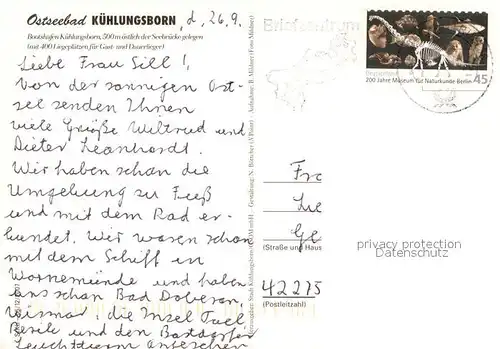 Ostseebad KÜHLUNGSBORN, d. 26.9.
Bootshafen Kühlungsborn, 500 m östlich der Seebrücke gelegen
(mit 400 Liegeplätzen für Gast- und Dauerlieger)
Liebe Frau Sill!,
von der sonnigen Ost-
see senden Ihnen
viele Grüße Wiltrud und
Dieter Leonhardt.
Wir haben schon die
Umgebung zu Fuß
und mit dem Rad er-
kundet. Wir waren schon
mit dem Schiff in
Warnemünde und haben
uns schon Bad Doberan,
Wismar die Insel Poel
Rerik und den Bastorfer
Leuchtturm angesehen
Briefzentrum
200 Jahre Museum für Naturkunde Berlin
45
Fr
Ge
(Straße und Haus
42275
(Postleitzahl)
privacy protection
Datenschutz